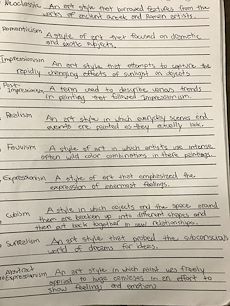 Neoclassic An art style that borrowed features from the
works of ancient Greek and Roman artists.
Romanticism A style of art that focused on dramatic
and exotic subjects.
Impressionism An art style that attempts to capture the
rapidly changing effects of sunlight on objects
Post-
Impressionism A term used to describe various trends
in painting that followed Impressionism.
Realism An art style in which everyday scenes and
events are painted as they actually look.
Fauvism A style of art in which artists use intense
often wild color combinations in their paintings.
Expressionism A style of art that emphasized the
expression of innermost feelings.
Cubism A style in which objects and the space around
them are broken up into different shapes and
then put back together in new relationships.
Surrealism An art style that probed the subconscious
world of dreams for ideas.
Abstract
Expressionism An art style in which paint was freely
applied to huge canvases in an effort to
show feelings and emotions